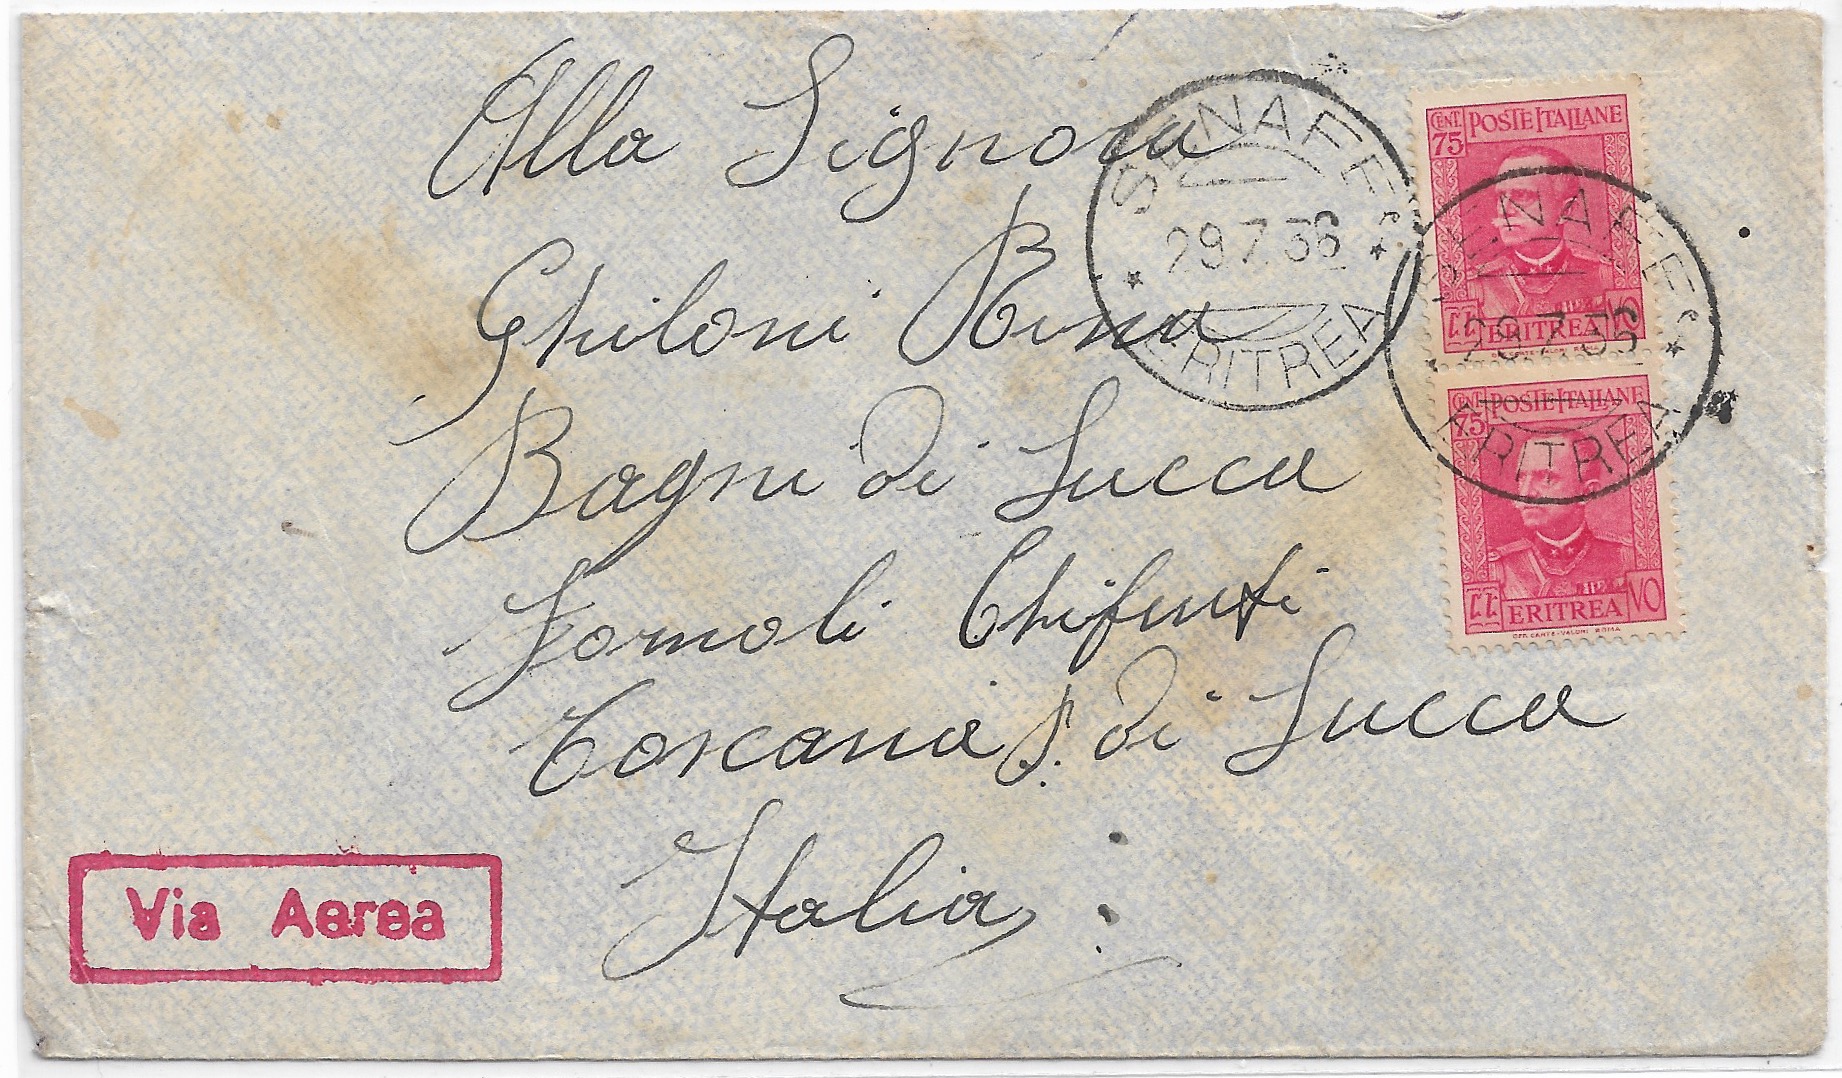 Alla Signora
Ghiloni Rina
Bagni di Lucca
Fornoli Chifenti
Toscana P. di Lucca
Italia
Via Aerea
SENAFE
29.7.36
ERITREA
CENT. 75 POSTE ITALIANE
ERITREA
SENAFE
29.7.36
ERITREA
CENT. 75 POSTE ITALIANE
ERITREA
OFF. CARTE-VALORI ROMA